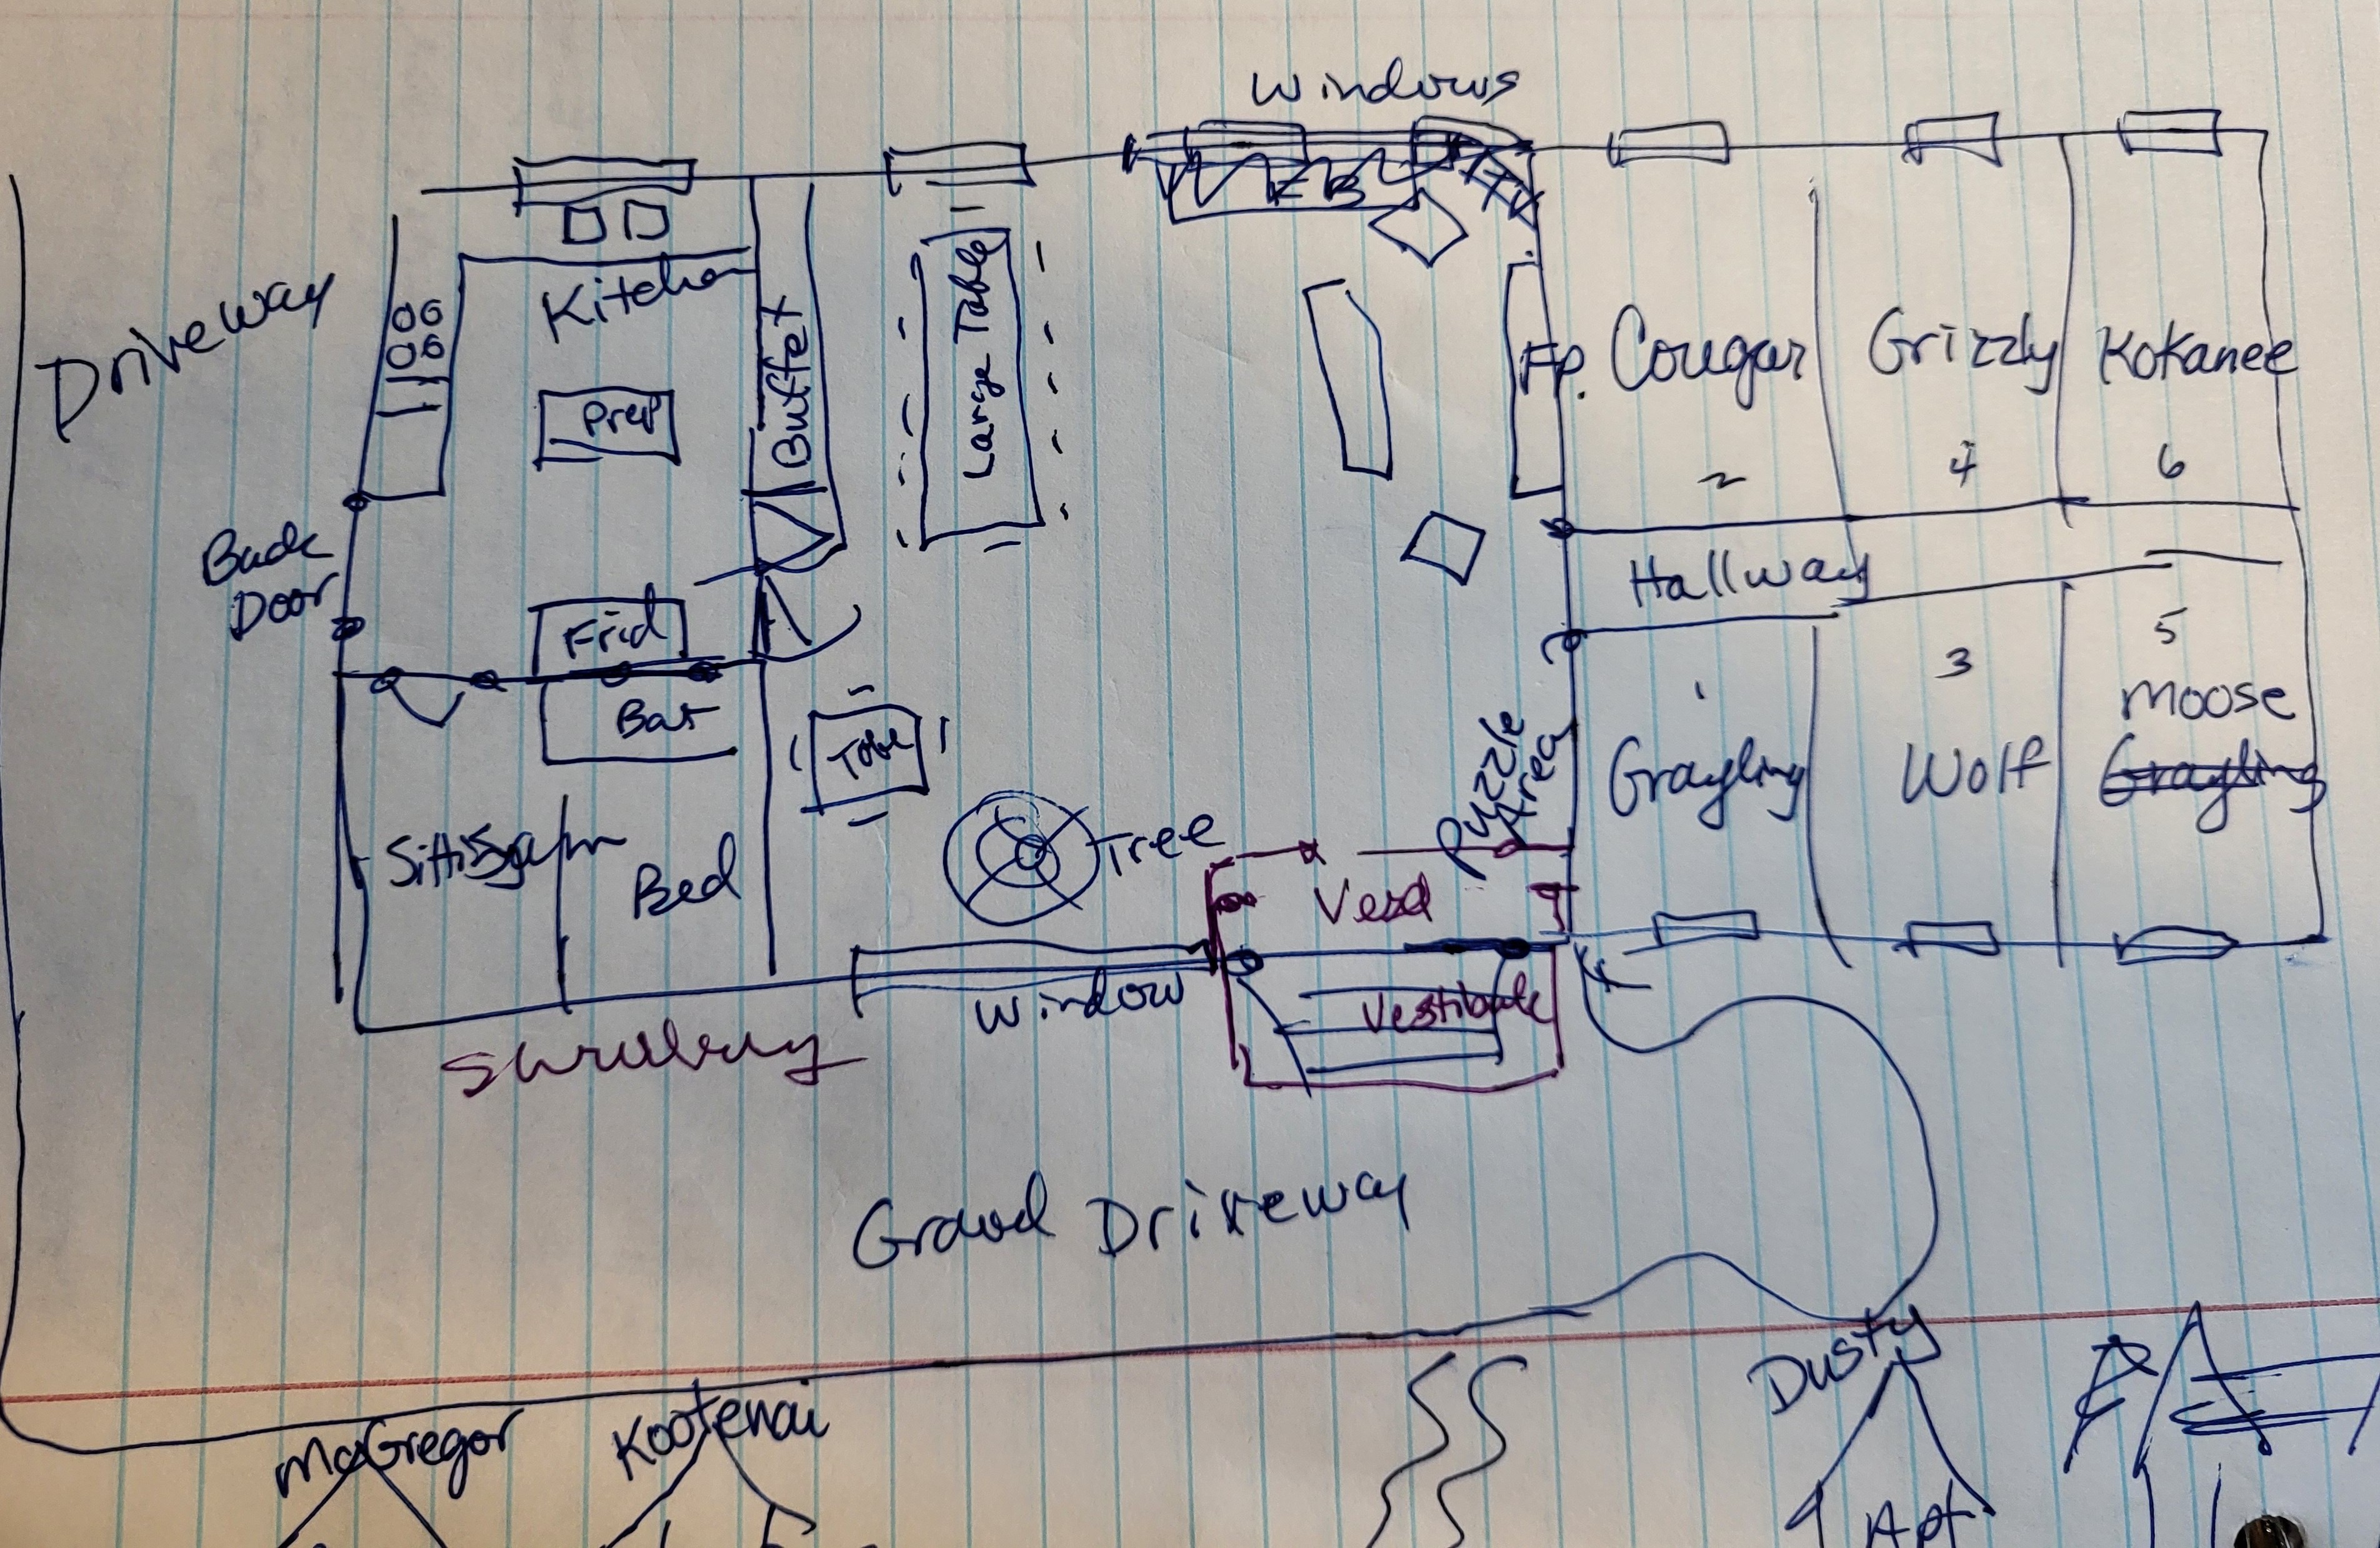 Windows
Driveway
Kitchen
Prep
Buffet
Large Table
TV
Fp.
Cougar
2
Grizzly
4
Kokanee
6
Back
Door
Hallway
Frid
Bat
Table
Tree
Puzzle
Area
1
Grayling
3
Wolf
5
Moose
Grayling
Bed
Window
Vestibule
Shrubbery
Gravel Driveway
McGregor
Kootenai
Dusty
Apt